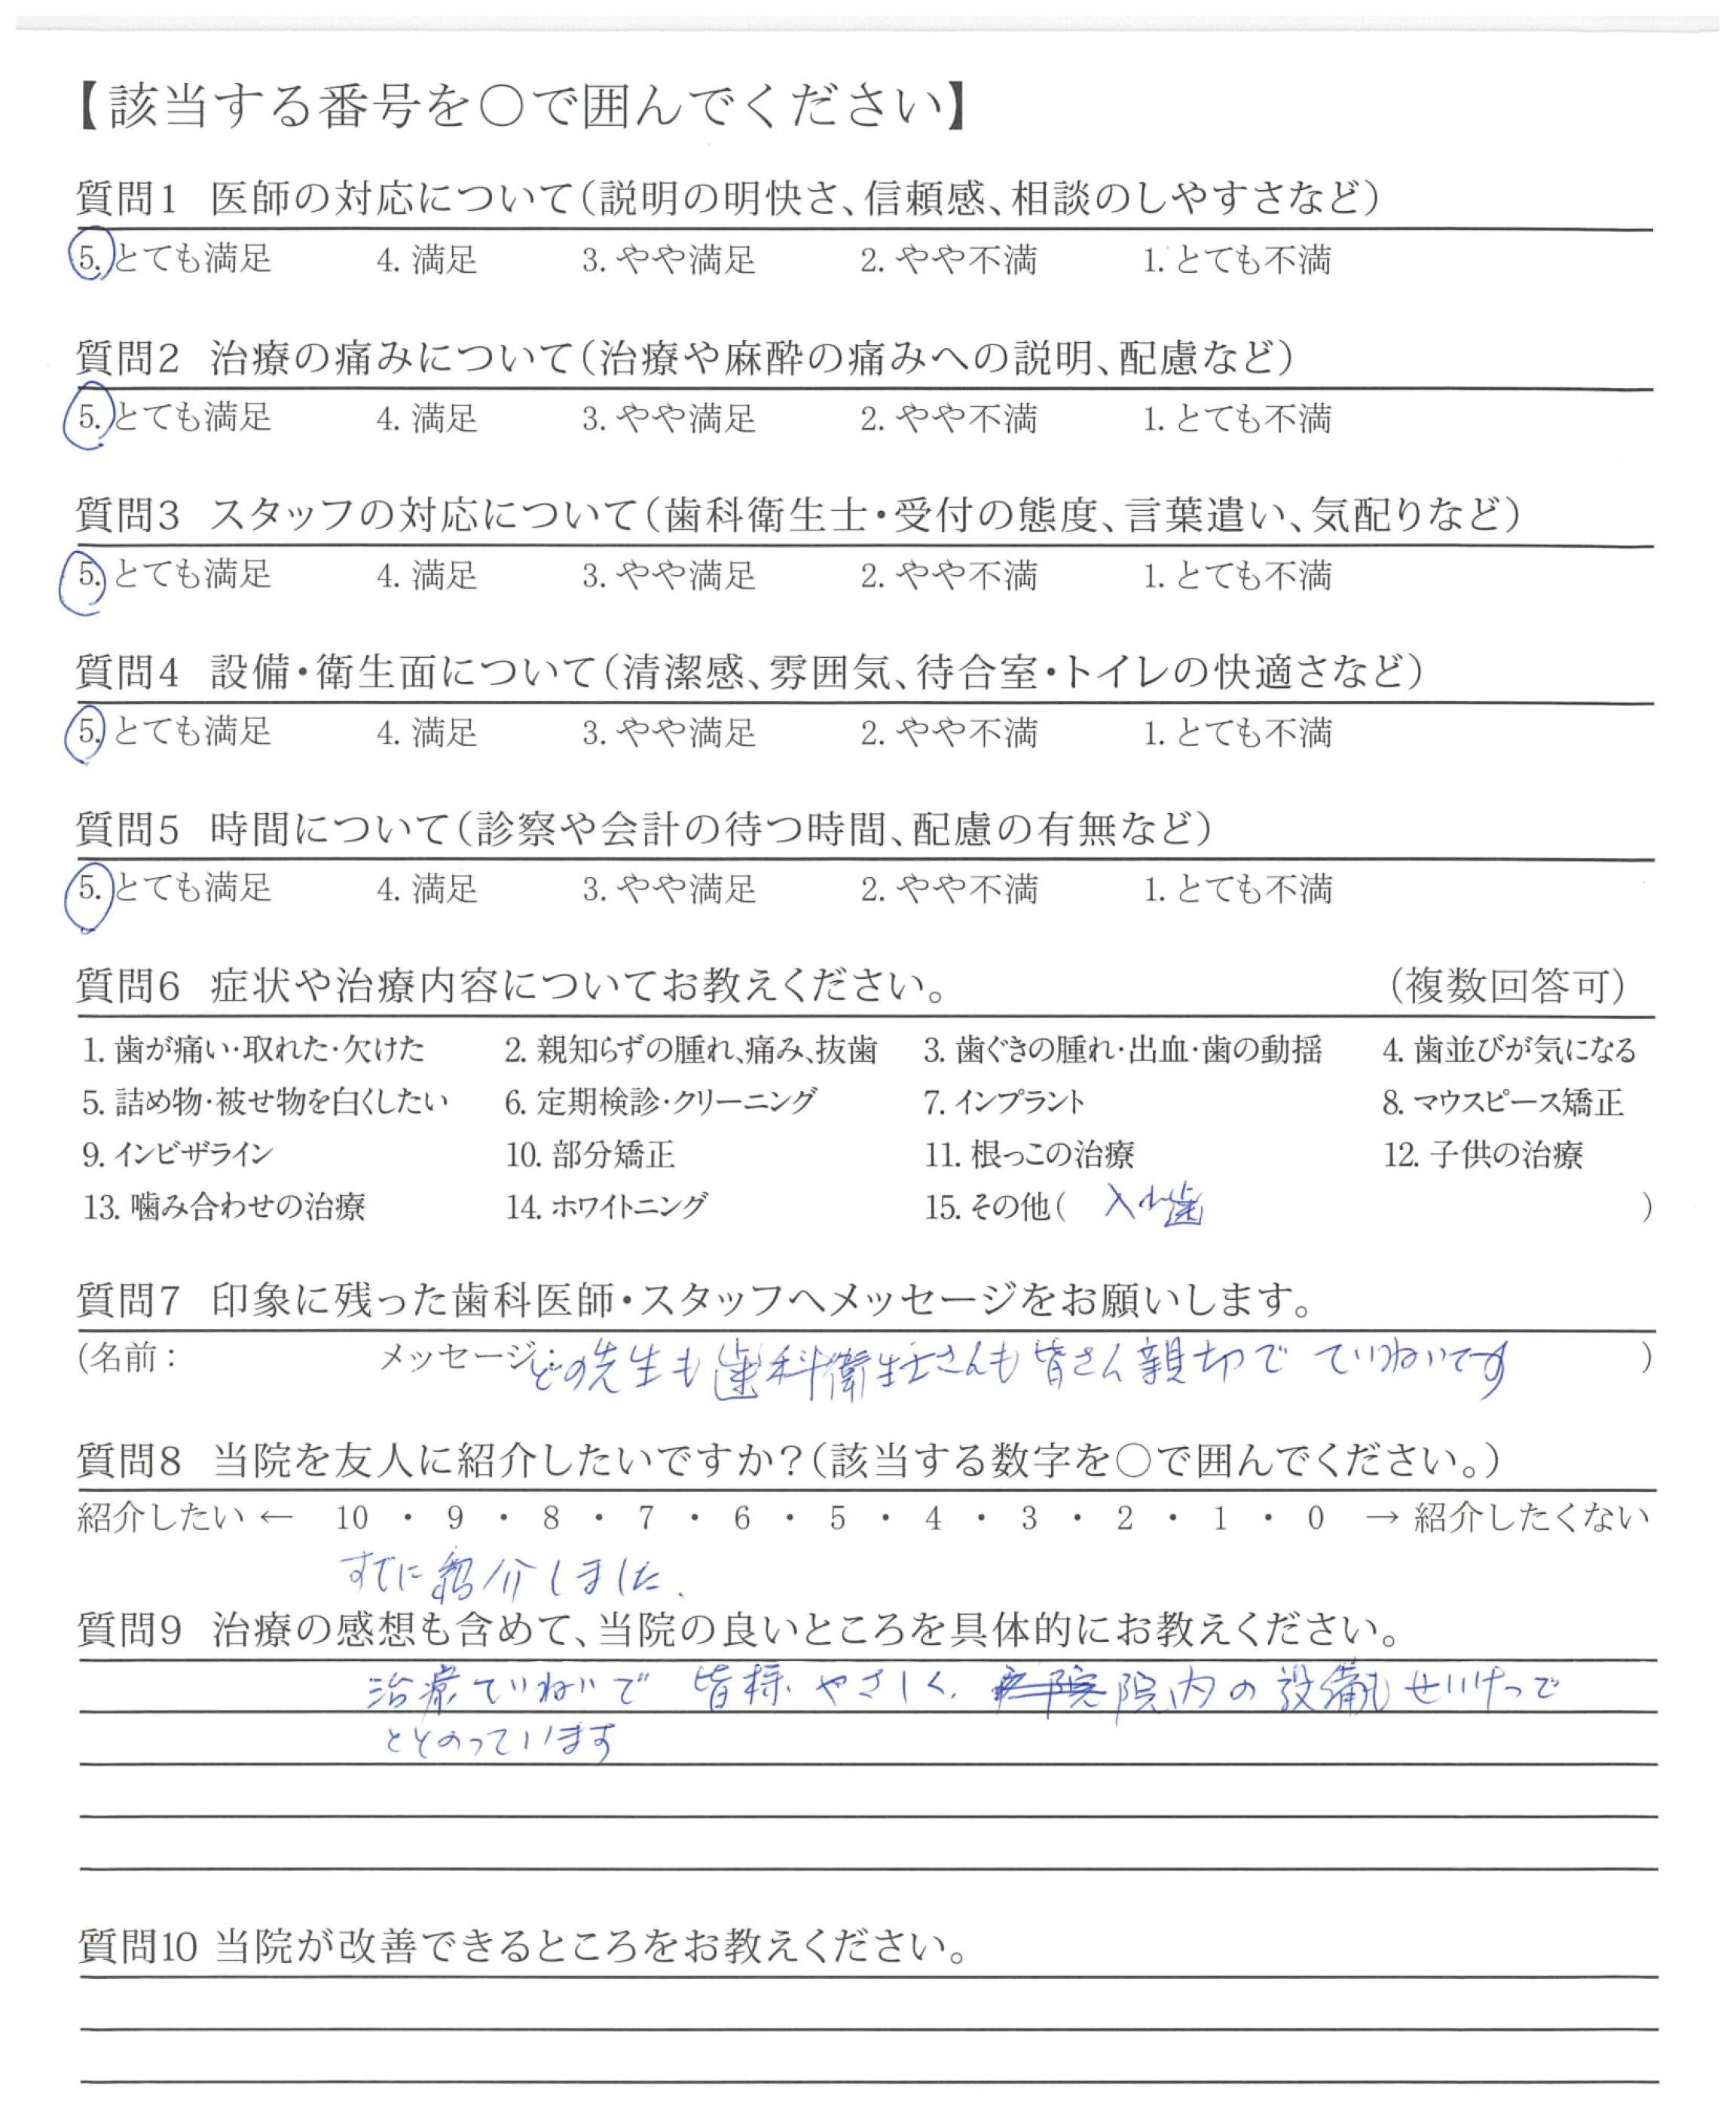 【該当する番号を○で囲んでください】
質問1 医師の対応について(説明の明快さ、信頼感、相談のしやすさなど)
5. とても満足 4. 満足 3. やや満足 2. やや不満 1. とても不満
質問2 治療の痛みについて(治療や麻酔の痛みへの説明、配慮など)
5. とても満足 4. 満足 3. やや満足 2. やや不満 1. とても不満
質問3 スタッフの対応について(歯科衛生士・受付の態度、言葉遣い、気配りなど)
5. とても満足 4. 満足 3. やや満足 2. やや不満 1. とても不満
質問4 設備・衛生面について(清潔感、雰囲気、待合室・トイレの快適さなど)
5. とても満足 4. 満足 3. やや満足 2. やや不満 1. とても不満
質問5 時間について(診察や会計の待つ時間、配慮の有無など)
5. とても満足 4. 満足 3. やや満足 2. やや不満 1. とても不満
質問6 症状や治療内容についてお教えください。 (複数回答可)
1. 歯が痛い・取れた・欠けた 2. 親知らずの腫れ、痛み、抜歯 3. 歯ぐきの腫れ・出血・歯の動揺 4. 歯並びが気になる
5. 詰め物・被せ物を白くしたい 6. 定期検診・クリーニング 7. インプラント 8. マウスピース矯正
9. インビザライン 10. 部分矯正 11. 根っこの治療 12. 子供の治療
13. 噛み合わせの治療 14. ホワイトニング 15. その他( 入れ歯 )
質問7 印象に残った歯科医師・スタッフへメッセージをお願いします。
(名前: メッセージ: どの先生も歯科衛生士さんも皆さん親切で ていねいです )
質問8 当院を友人に紹介したいですか?(該当する数字を○で囲んでください。)
紹介したい ← 10 ・ 9 ・ 8 ・ 7 ・ 6 ・ 5 ・ 4 ・ 3 ・ 2 ・ 1 ・ 0 → 紹介したくない
すでに紹介しました.
質問9 治療の感想も含めて、当院の良いところを具体的にお教えください。
治療ていねいで 皆様 やさしく、院内の設備も せいけつで
ととのっています
質問10 当院が改善できるところをお教えください。